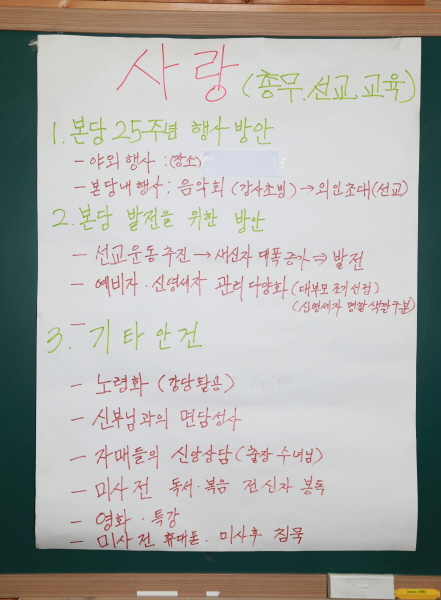 사랑 (총무.선교.교육)
1. 본당 25주년 행사 방안
- 야외행사 : (장소)
- 본당내행사 ; 음악회 (강사초빙) → 외인초대 (선교)
2. 본당 발전을 위한 방안
- 선교운동 추진 → 새신자 대폭 증가 ⇒ 발전
- 예비자 · 신영세자 관리 다양화 (대부모 조기 선정)
(신영세자 명찰 색깔 구분)
-
3. 기타안건
- 노령화 (강당활용)
- 신부님과의 면담성사
- 자매들의 신앙상담 (출장 수녀님)
- 미사 전 독서 · 복음 전 신자 봉독
- 영화 · 특강
- 미사 전 휴대폰 · 미사후 침묵